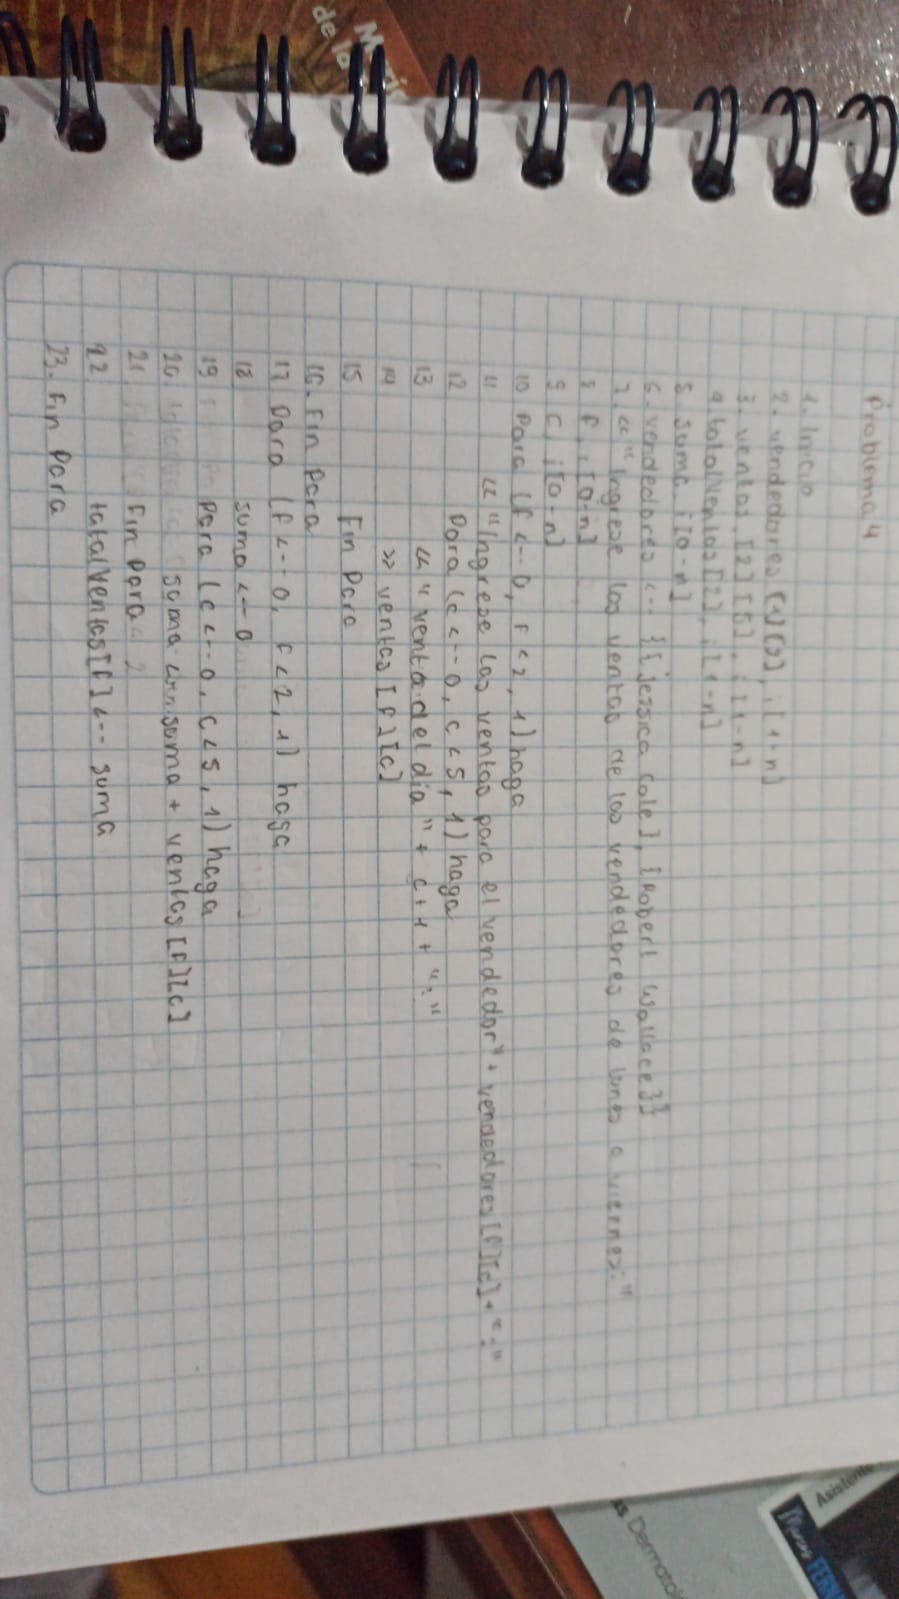 Problema 4
1. Inicio
2. vendedores [1][2], [1-n]
3. ventas, [2][5], [1-n]
4. totalVentas [2], [1-n]
5. suma, [0-n]
6. vendedores <-- {{jessica Cole}, {Robert Wallace}}
7. << "Ingrese las ventas de los vendedores de lunes a viernes:"
8 f, [0-n]
9 c, [0-n]
10 Para (f <-- 0, f < 2, 1) haga
11 << "Ingrese las ventas para el vendedor" + vendedores[f][c] + ":"
12 Para (c <-- 0, c < 5, 1) haga
13 << "venta del día" + c+1 + ":"
14 >> ventas [f][c]
15 Fin Para
16. Fin Para
17 Para (f <-- 0, f < 2, 1) haga
18 suma <-- 0
19 Para (c <-- 0, c < 5, 1) haga
20. suma <-- suma + ventas [f][c]
21. Fin Para
22 totalVentas[f] <-- suma
23. Fin Para
de la
Asistente
Dermatol